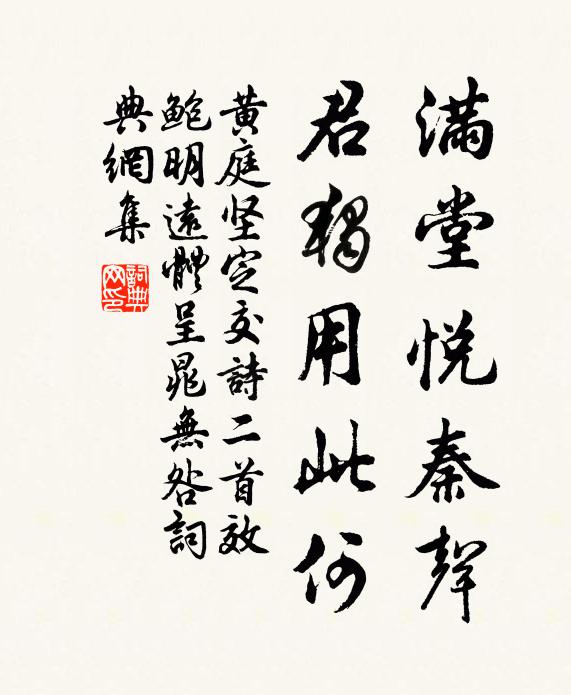 满堂悦秦聲
君独用此何
黄庭坚定交詩二首效
鲍明遠體呈晁無咎詞
典網集
詞典网印